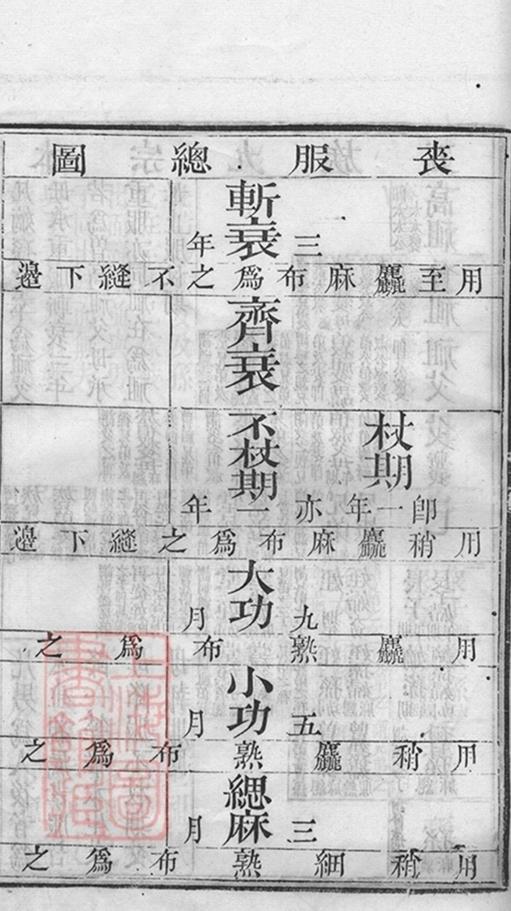 喪服總圖
斬衰
三年
用至麤麻布為之不縫下邊
齊衰
杖期
即一年
不杖期
亦一年
用稍麤麻布為之縫下邊
大功
九月
用麤熟布為之
小功
五月
用稍麤熟布為之
緦麻
三月
用稍細熟布為之